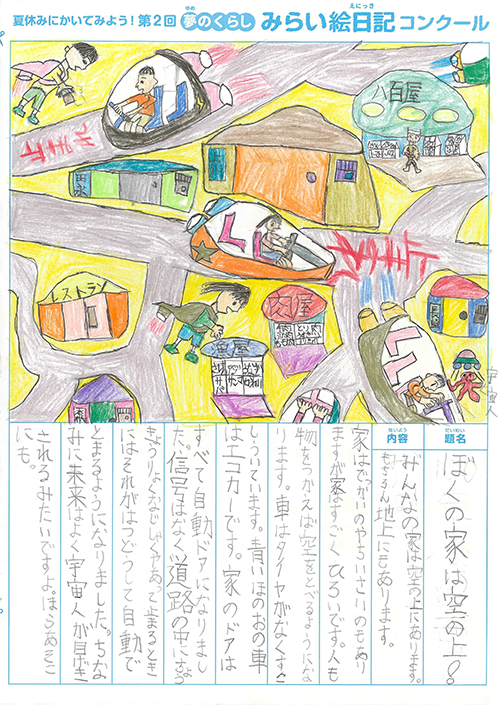 夏休みにかいてみよう！第2回 夢のくらし みらい絵日記コンクール
ゆめ
えにっき
八百屋
止まれ
レストラン
止まれ
肉屋
魚屋
サバ
宇宙人
だいめい
題名
ぼくの家は空の上！
ないよう
内容
みんなの家は空の上にあります。
もちろん地上にもあります。
家はでっかいのやちいさいのもあり
ますが家はすごくひろいです。人も
物をつかえば空をとべるようにな
ります。車はタイヤがなくすこ
しういています。青いほのおの車
はエコカーです。家のドアは
すべて自動ドアになりまし
た。信号はなく、道路の中に
きょうりょくなじしゃくがあって止まるとき
にはそれがはつどうして自動で
とまるようになりました。ちな
みに未来はよく宇宙人が目げき
されるみたいですよ。ほらあそこ
にも。